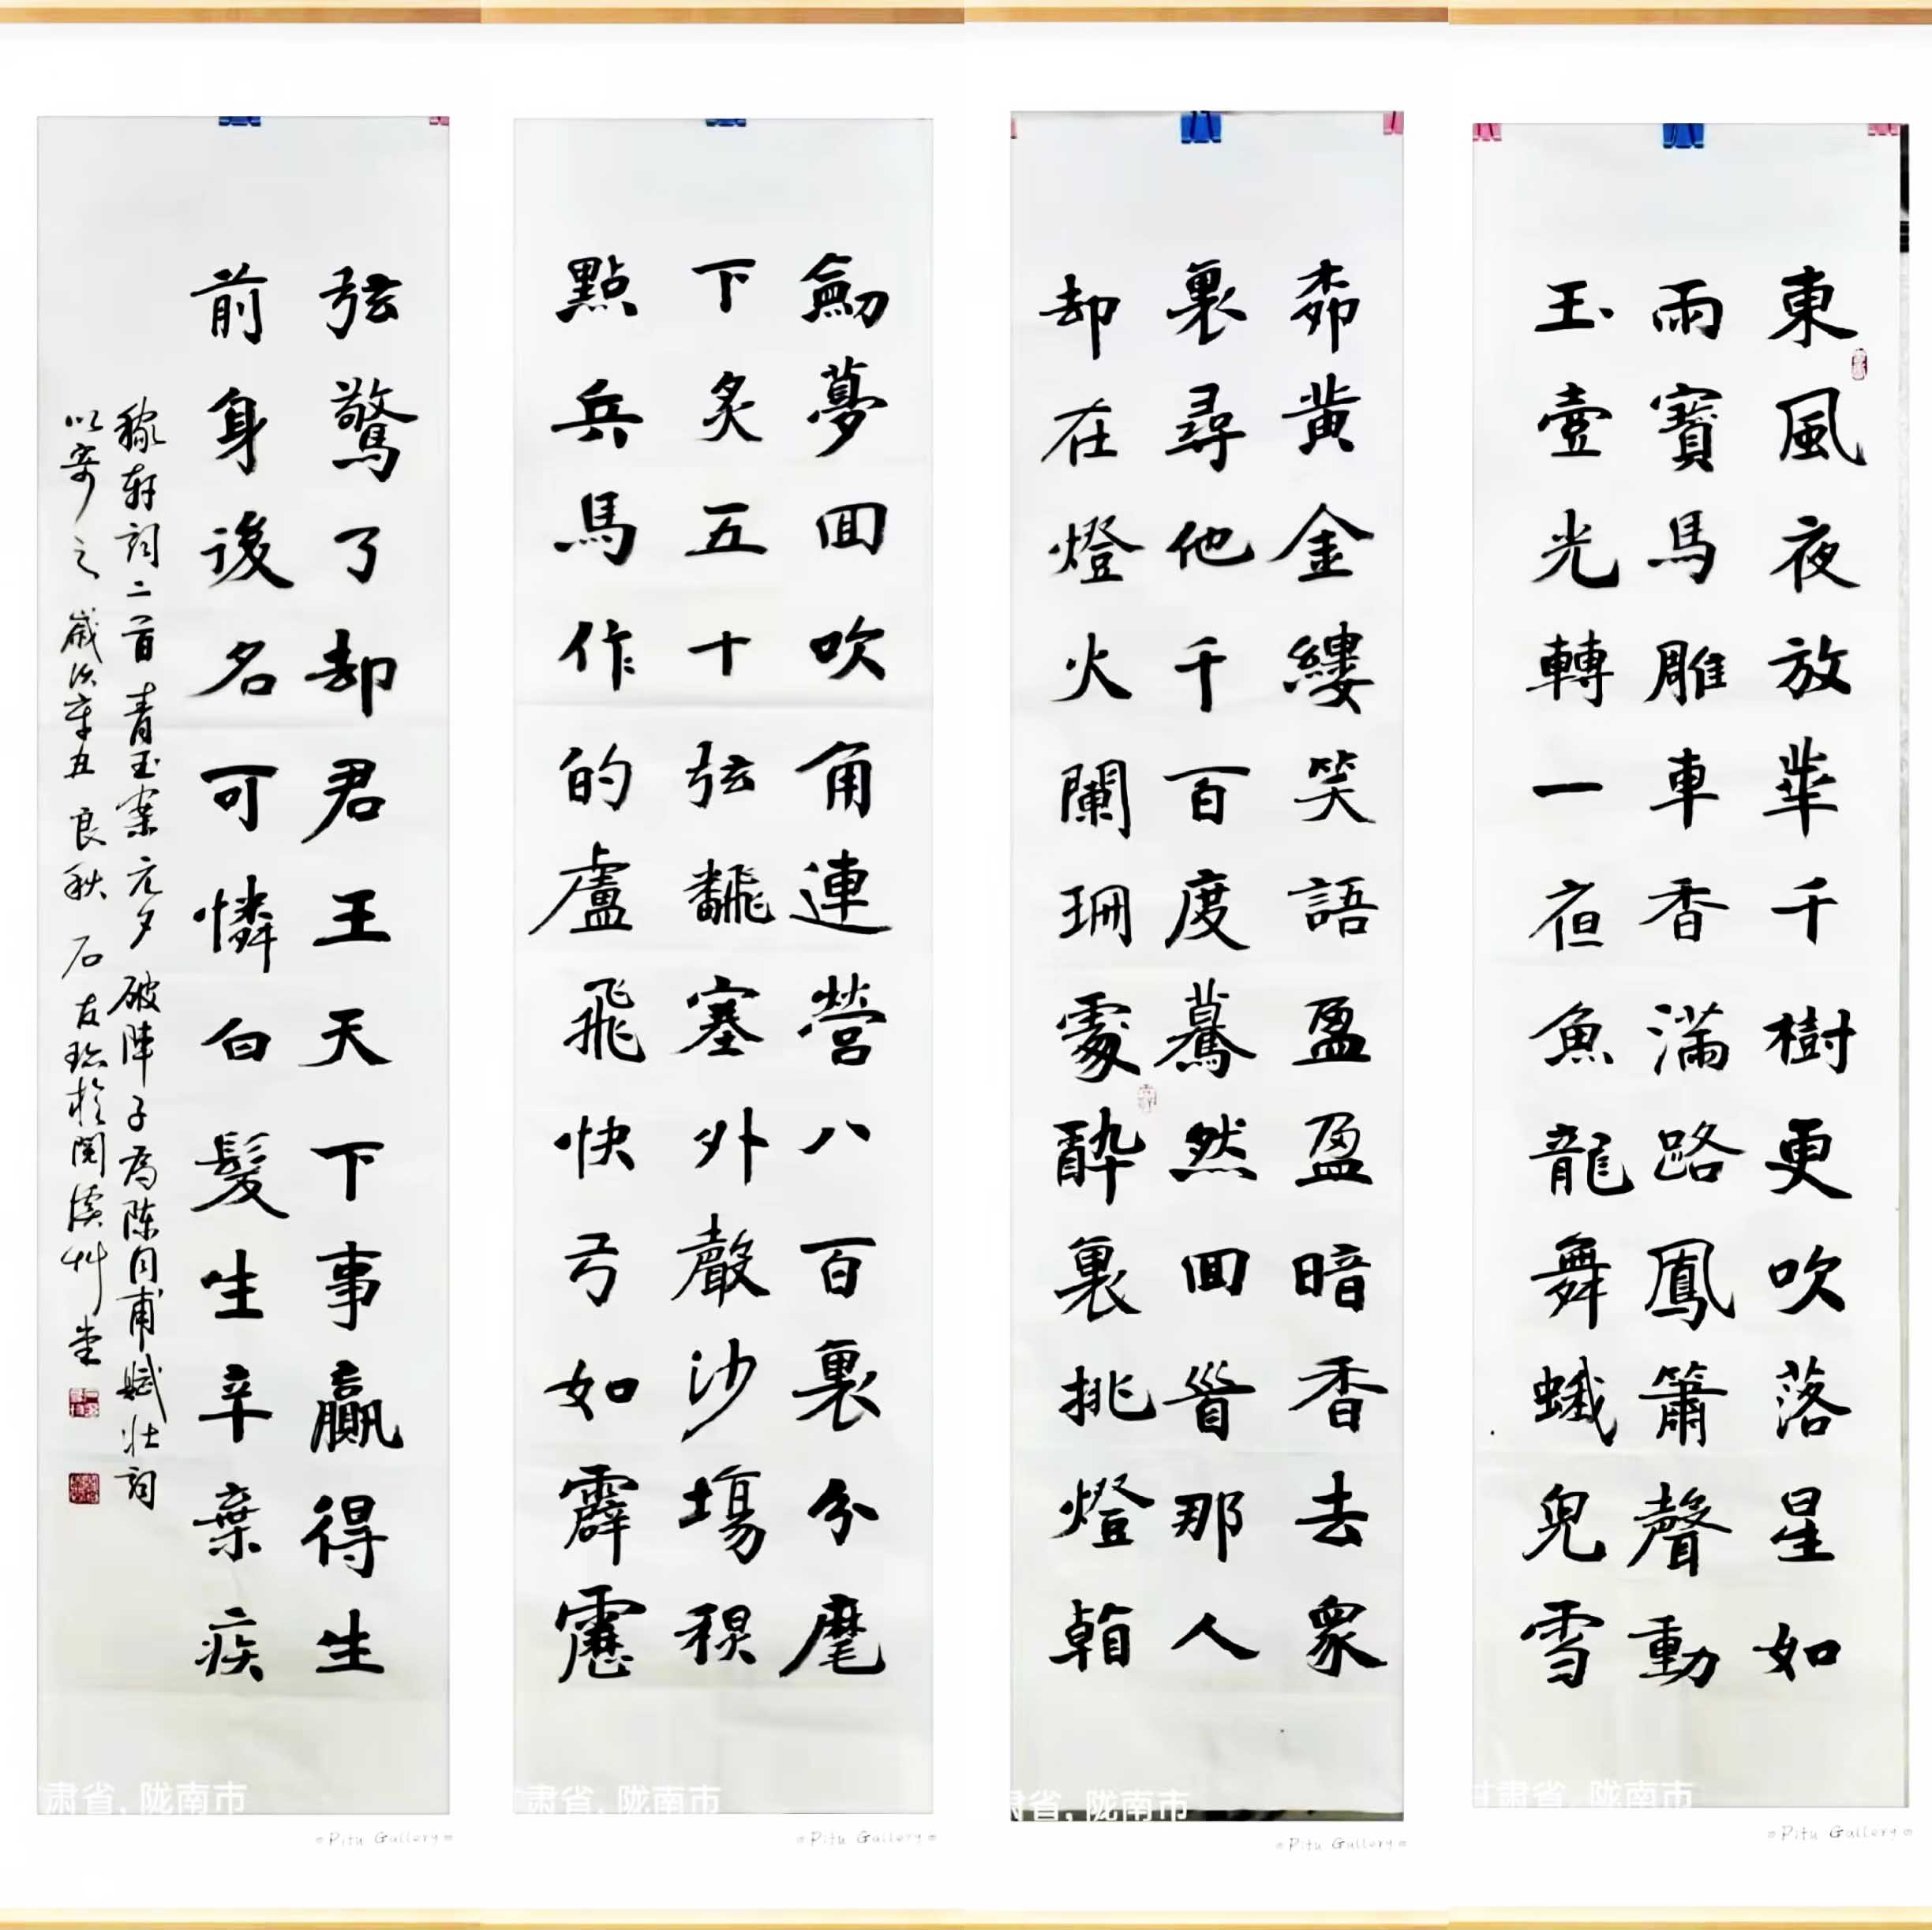 東風夜放華千樹更吹落星如
雨寶馬雕車香滿路鳳簫聲動
玉壺光轉一夜魚龍舞蛾兒雪
桺黃金縷笑語盈盈暗香去衆
裏尋他千百度驀然回首那人
却在燈火闌珊處醉裏挑燈看
劒夢回吹角連營八百裏分麾
下炙五十弦翻塞外聲沙塲秋
點兵馬作的盧飛快弓如霹靂
弦驚了却君王天下事贏得生
前身後名可憐白髮生辛棄疾
稼軒詞二首青玉案元夕破陣子為陳同甫賦壯詞
以寄之歲次辛丑良秋石友於溪艸堂
肃省, 陇南市
肃省, 陇南市
肃省, 陇南市
甘肃省, 陇南市
Pitu Gallery
Pitu Gallery
Pitu Gallery
Pitu Gallery